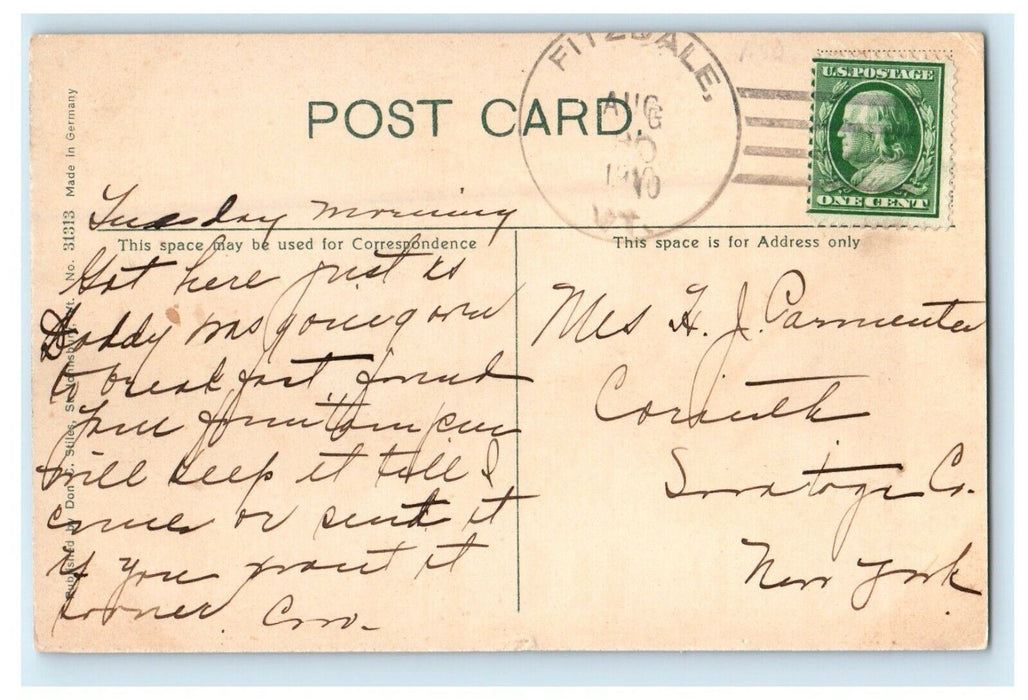 POST CARD.
FITZDALE,
AUG
30
1910
VT.
U.S. POSTAGE
ONE CENT
Made in Germany
Published by Don C. Stiles, St. Johnsbury, Vt. No. 31313
Tuesday morning
This space may be used for Correspondence
This space is for Address only
Got here just as
Daddy was going down
to breakfast found
your fountain pen
will keep it till I
come or send it
if you want it
sooner.
Mrs H. J. Parmenter
Corinth
Saratoga Co.
New York